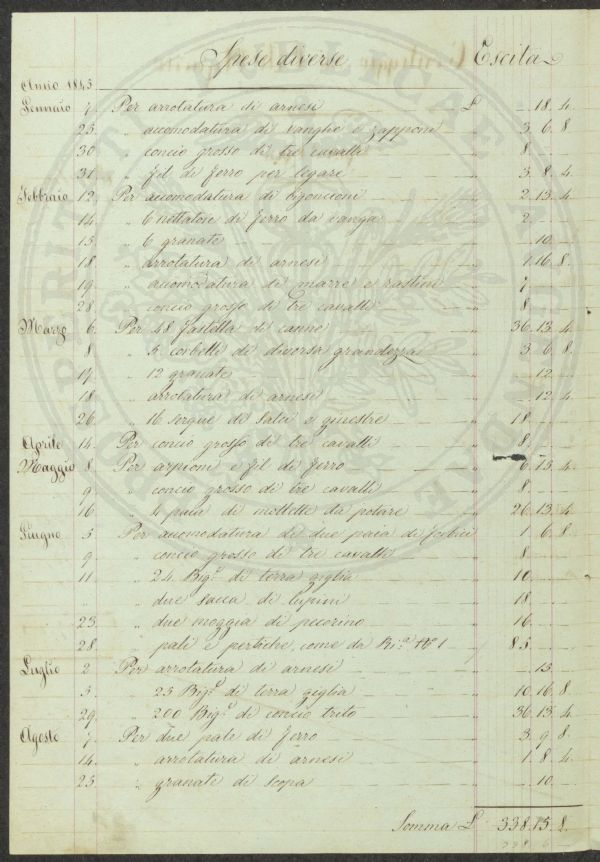 Spese diverse Escita
Anno 1845
Gennaio 7. Per arrotatura di arnesi £ _ 18. 4.
23. " accomodatura di vanghe e zapponi " 3. 6. 8.
30. " concio grosso di tre cavalli " 8.
31. " fil di ferro per legare " 3. 8. 4.
Febbraio 12. Per accomodatura di bigoncioni " 2. 13. 4.
14. " 6 nettatoie di ferro da vanga " 2.
15. " 6 granate " _ 10.
18. " arrotatura di arnesi " 1. 16. 8.
19. " accomodatura di marre e rastini " 7.
28. " concio grosso di tre cavalli " 8.
Marzo 6. Per 48 fastella di canne " 36. 13. 4.
8. " 5 corbelli di diversa grandezza " 3. 6. 8.
14. " 12 granate " _ 12.
18. " arrotatura di arnesi " _ 12. 4.
26. " 16 serque di salci e ginestre " 18.
Aprile 14. Per concio grosso di tre cavalli " 8.
Maggio 8. Per arpioni e fil di ferro " 6. 13. 4.
9. " concio grosso di tre cavalli " 8.
16. " 4 paia di mollette da potare " 26. 13. 4.
Giugno 5. Per accomodatura di due paia di forbici " 1. 6. 8.
9. " concio grosso di tre cavalli " 8.
11. " 24 Big.e di terra giglia " 10.
" due sacca di lupini " 18.
23. " due moggia di pecorino " 16.
28. " pali e pertiche, come da Ri.a N° 1 " 85.
Luglio 2. Per arrotatura di arnesi " _ 13.
3. " 25 Big.e di terra giglia " 10. 16. 8.
29. " 200 Big.e di concio trito " 36. 13. 4.
Agosto 7. Per due pale di ferro " 3. 9. 8.
14. " arrotatura di arnesi " 1. 8. 4.
25. " granate di scopa " _ 10.
Somma £ 338. 15. 8.